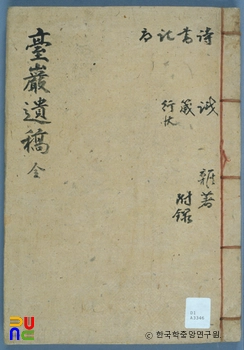 臺巖遺稿 全
詩 書 記
誠 箴 行狀
雜著
附錄
한국학중앙연구원